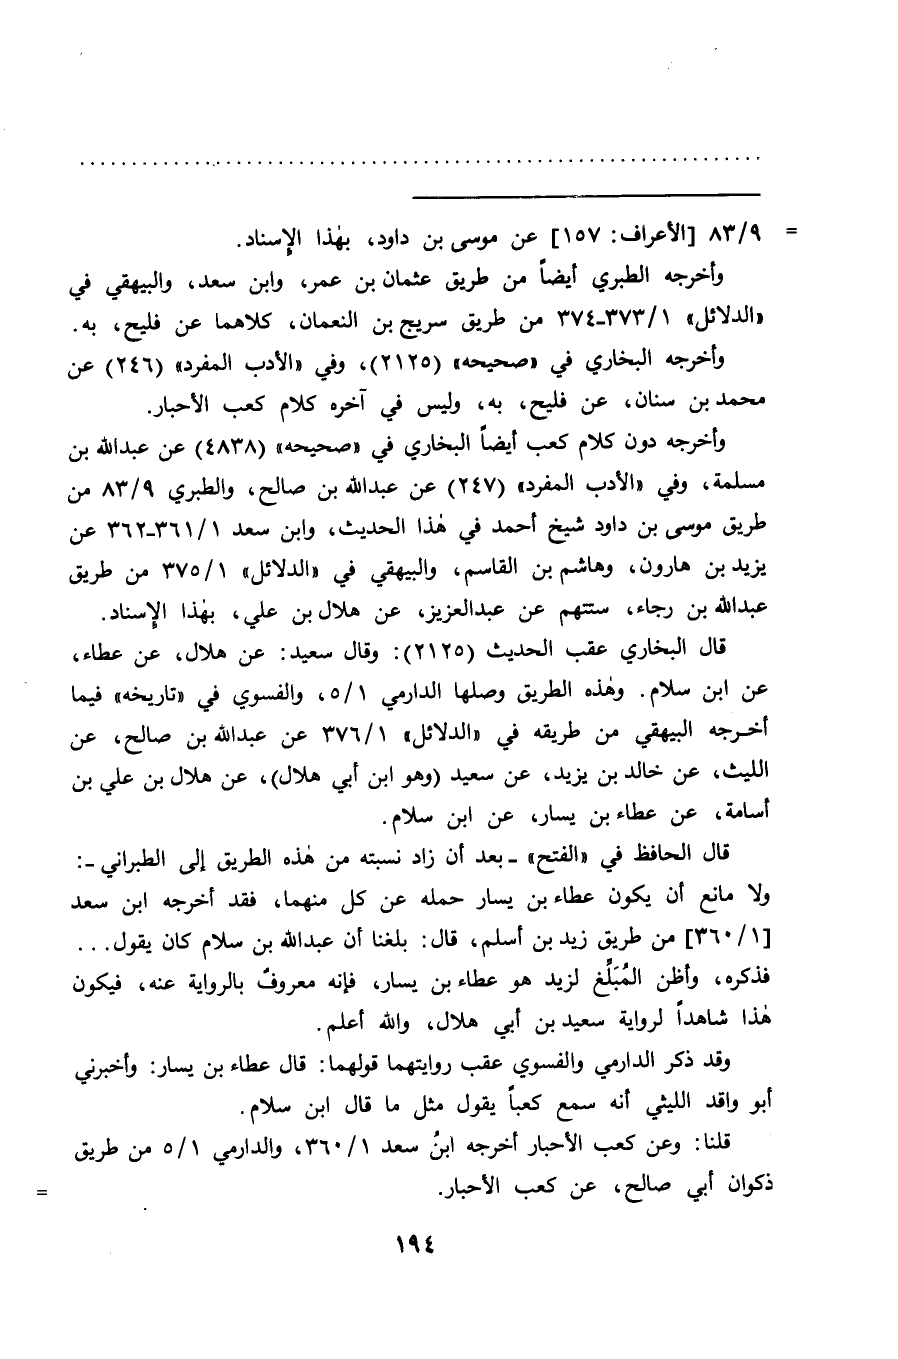 = ٨٣/٩ [الأعراف: ١٥٧] عن موسى بن داود، بهٰذا الإِسناد.
وأخرجه الطبري أيضاً من طريق عثمان بن عمر، وابن سعد، والبيهقي في
«الدلائل» ٣٧٣/١-٣٧٤ من طريق سريج بن النعمان، كلاهما عن فليح، به.
وأخرجه البخاري في «صحيحه» (٢١٢٥)، وفي «الأدب المفرد» (٢٤٦) عن
محمد بن سنان، عن فليح، به، وليس في آخره كلام كعب الأحبار.
وأخرجه دون كلام كعب أيضاً البخاري في «صحيحه» (٤٨٣٨) عن عبدالله بن
مسلمة، وفي «الأدب المفرد» (٢٤٧) عن عبدالله بن صالح، والطبري ٨٣/٩ من
طريق موسى بن داود شيخ أحمد في هٰذا الحديث، وابن سعد ٣٦١/١-٣٦٢ عن
يزيد بن هارون، وهاشم بن القاسم، والبيهقي في «الدلائل» ٣٧٥/١ من طريق
عبدالله بن رجاء، ستتهم عن عبدالعزيز، عن هلال بن علي، بهٰذا الإِسناد.
قال البخاري عقب الحديث (٢١٢٥): وقال سعيد: عن هلال، عن عطاء،
عن ابن سلام. وهٰذه الطريق وصلها الدارمي ٥/١، والفسوي في «تاريخه» فيما
أخرجه البيهقي من طريقه في «الدلائل» ٣٧٦/١ عن عبدالله بن صالح، عن
الليث، عن خالد بن يزيد، عن سعيد (وهو ابن أبي هلال)، عن هلال بن علي بن
أسامة، عن عطاء بن يسار، عن ابن سلام.
قال الحافظ في «الفتح» - بعد أن زاد نسبته من هٰذه الطريق إلى الطبراني -:
ولا مانع أن يكون عطاء بن يسار حمله عن كل منهما، فقد أخرجه ابن سعد
[٣٦٠/١] من طريق زيد بن أسلم، قال: بلغنا أن عبدالله بن سلام كان يقول...
فذكره، وأظن المُبَلِّغ لزيد هو عطاء بن يسار، فإنه معروفٌ بالرواية عنه، فيكون
هٰذا شاهداً لرواية سعيد بن أبي هلال، والله أعلم.
وقد ذكر الدارمي والفسوي عقب روايتهما قولهما: قال عطاء بن يسار: وأخبرني
أبو واقد الليثي أنه سمع كعباً يقول مثل ما قال ابن سلام.
قلنا: وعن كعب الأحبار أخرجه ابنُ سعد ٣٦٠/١، والدارمي ٥/١ من طريق
ذكوان أبي صالح، عن كعب الأحبار. =
١٩٤